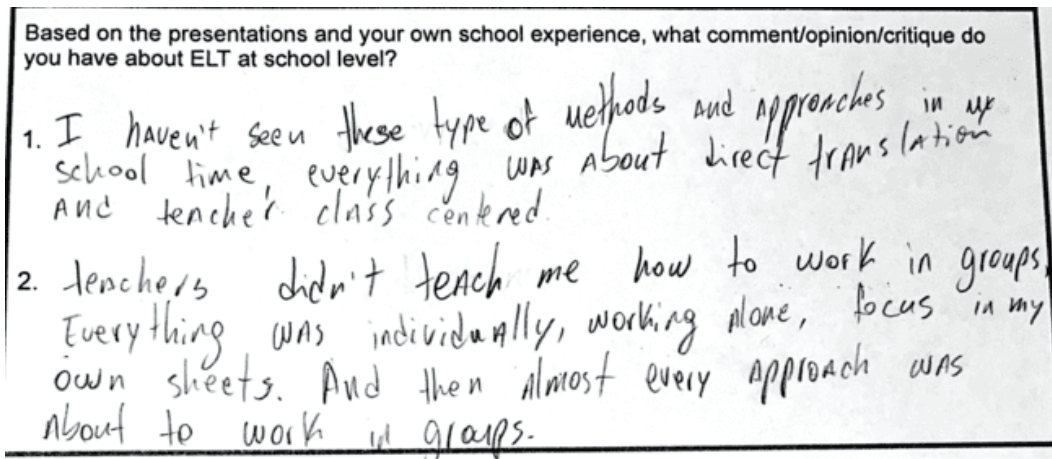 Based on the presentations and your own school experience, what comment/opinion/critique do
you have about ELT at school level?
1. I haven't seen these type of methods and approaches in my
school time, everything was about direct translation
and teacher class centered.
2. teachers didn't teach me how to work in groups.
Everything was individually, working alone, focus in my
own sheets. And then almost every approach was
about to work in groups.